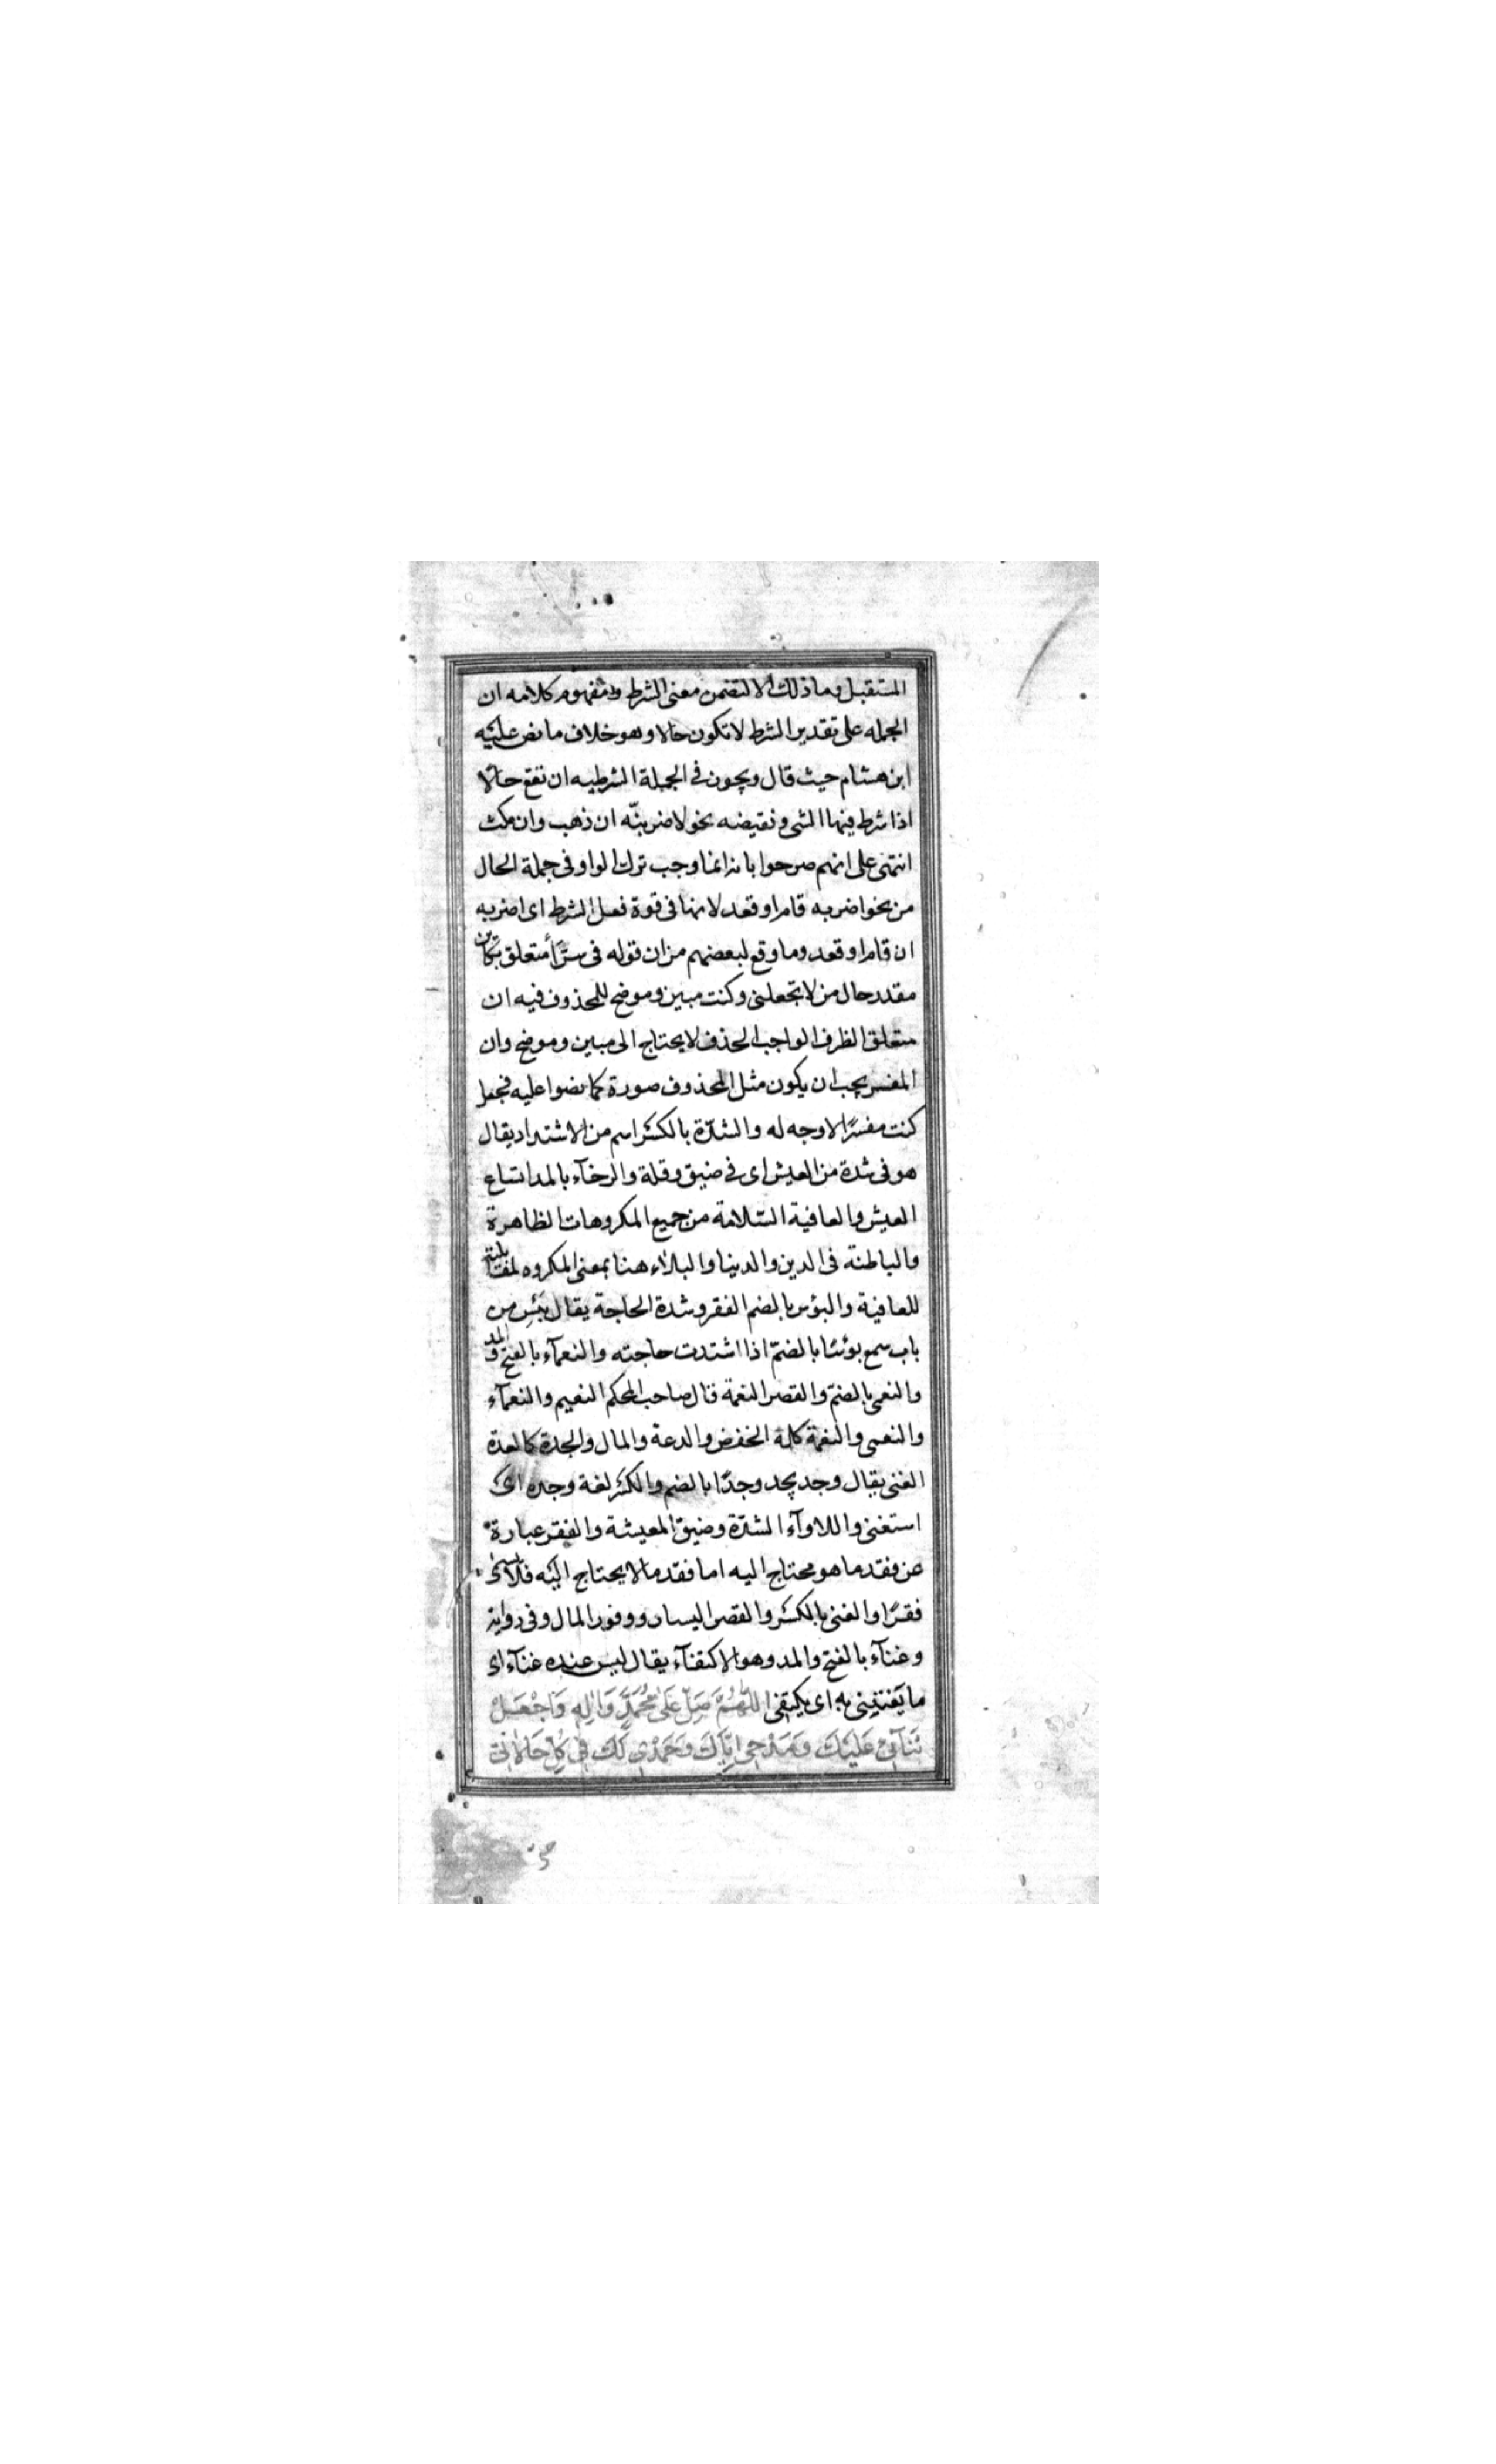 المستقبل وما ذلك الا لتضمن معنى الشرط ومفهوم كلامه ان
الجمله على تقدير الشرط لا تكون حالا وهو خلاف ما نص عليه
ابن هشام حيث قال ويجوز فى الجملة الشرطيه ان تقع حالا
اذا شرط فيها الشى ونقيضه نحو لاضربنّه ان ذهب وان مكث
انتهى على انهم صرحوا بانه انما وجب ترك الواو فى جملة الحال
من نحو اضربه قام او قعد لانها فى قوة فعل الشرط اى اضربه
ان قام او قعد وما وقع لبعضهم من ان قوله فى سرّاً متعلق بكائن
مقدر حال من لا تجعلنى وكنت مبين وموضح للمحذوف فيه ان
متعلق الظرف الواجب الحذف لا يحتاج الى مبين وموضح وان
المفسر يجب ان يكون مثل المحذوف صورة كما نصوا عليه فجعل
كنت مفسرًا لا وجه له والشدّة بالكسر اسم من الاشتداد يقال
هو فى شدة من العيش اى فى ضيق وقلة والرخآء بالمد اتساع
العيش والعافية السّلامة من جميع المكروهات الظاهرة
والباطنة فى الدين والدنيا والبلاء هنا بمعنى المكروه لمقابلته
للعافية والبؤس بالضم الفقر وشدة الحاجة يقال بَئِس من
باب سمع بوئسًا بالضمّ اذا اشتدت حاجته والنعمآء بالفتح والمد
والنعمى بالضمّ والقصر النعمة قال صاحب المحكم النعيم والنعمآء
والنعمى والنعمة كله الخفض والدعة والمال والجدة كالعدة
الغنى يقال وجد يجد وجدًا بالضم والكسر لغة وجده اى
استغنى واللاوآء الشدّة وضيق المعيشة والفقر عبارة
عن فقد ما هو محتاج اليه اما فقد ما لا يحتاج اليَه فلا يسمى
فقرًا والغنى بالكسْر والقصر اليسار ووفور المال وفى رواية
وغنآء بالفتح والمد وهو الاكتفآء يقال ليس عنده غنآء اى
ما يَغتنِى به اى يكتفى اللّهُمَّ صَلِّ عَلى مُحَمَّدٍ وَالِهِ وَاجْعَلْ
ثَنَآئى عَلَيْكَ وَمَدْحِى اِيَّاكَ وَحَمْدِى لَكَ فى كُلِّ حَالاتى